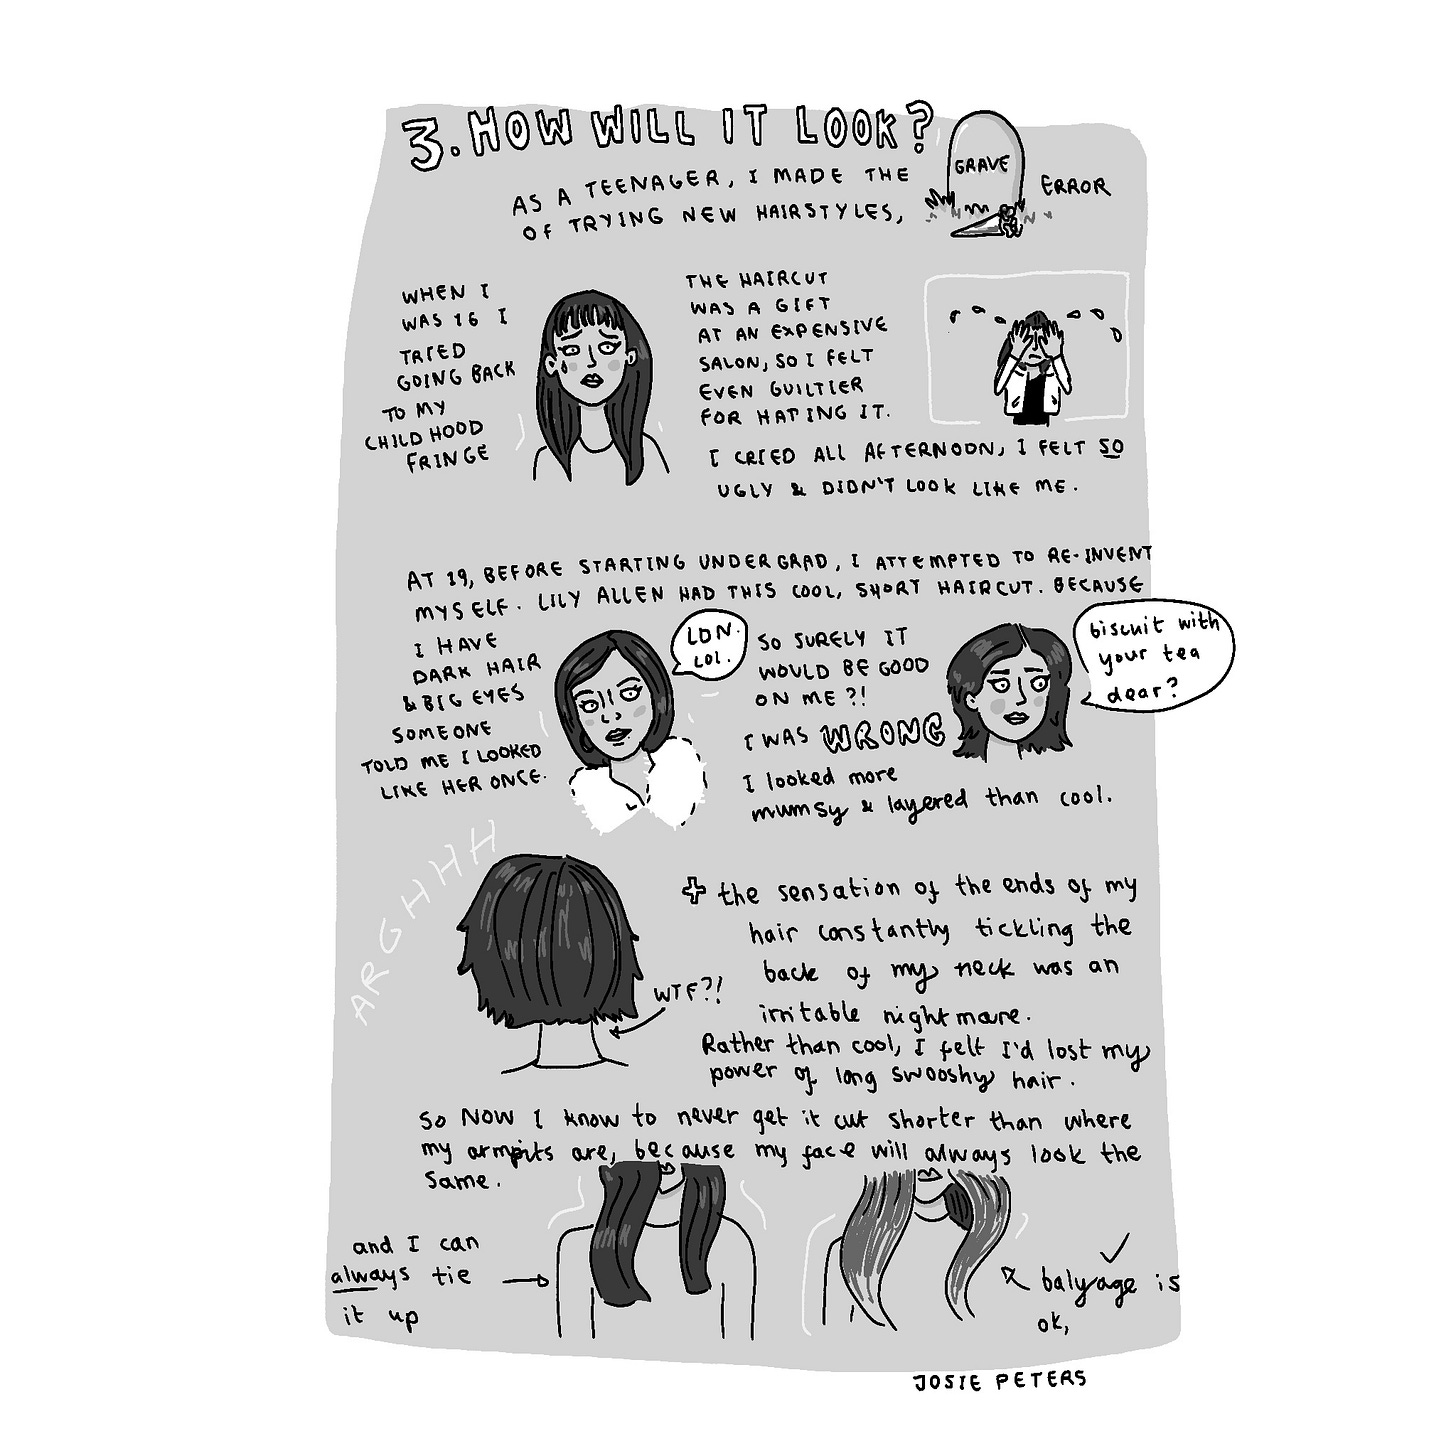 3. HOW WILL IT LOOK?
AS A TEENAGER, I MADE THE
GRAVE
ERROR
OF TRYING NEW HAIRSTYLES,
WHEN I
WAS 16 I
TRIED
GOING BACK
TO MY
CHILDHOOD
FRINGE
THE HAIRCUT
WAS A GIFT
AT AN EXPENSIVE
SALON, SO I FELT
EVEN GUILTIER
FOR HATING IT.
I CRIED ALL AFTERNOON, I FELT SO
UGLY & DIDN'T LOOK LIKE ME.
AT 19, BEFORE STARTING UNDERGRAD, I ATTEMPTED TO RE-INVENT
MYSELF. LILY ALLEN HAD THIS COOL, SHORT HAIRCUT. BECAUSE
I HAVE
DARK HAIR
& BIG EYES
SOMEONE
TOLD ME I LOOKED
LIKE HER ONCE.
LDN.
LOL.
SO SURELY IT
WOULD BE GOOD
ON ME?!
I WAS WRONG
biscuit with
your tea
dear?
I looked more
mumsy & layered than cool.
ARGHHHH
+ the sensation of the ends of my
hair constantly tickling the
back of my neck was an
irritable nightmare.
WTF?!
Rather than cool, I felt I'd lost my
power of long swooshy hair.
So NOW I know to never get it cut shorter than where
my armpits are, because my face will always look the
same.
and I can
always tie
it up
balyage is
ok,
JOSIE PETERS